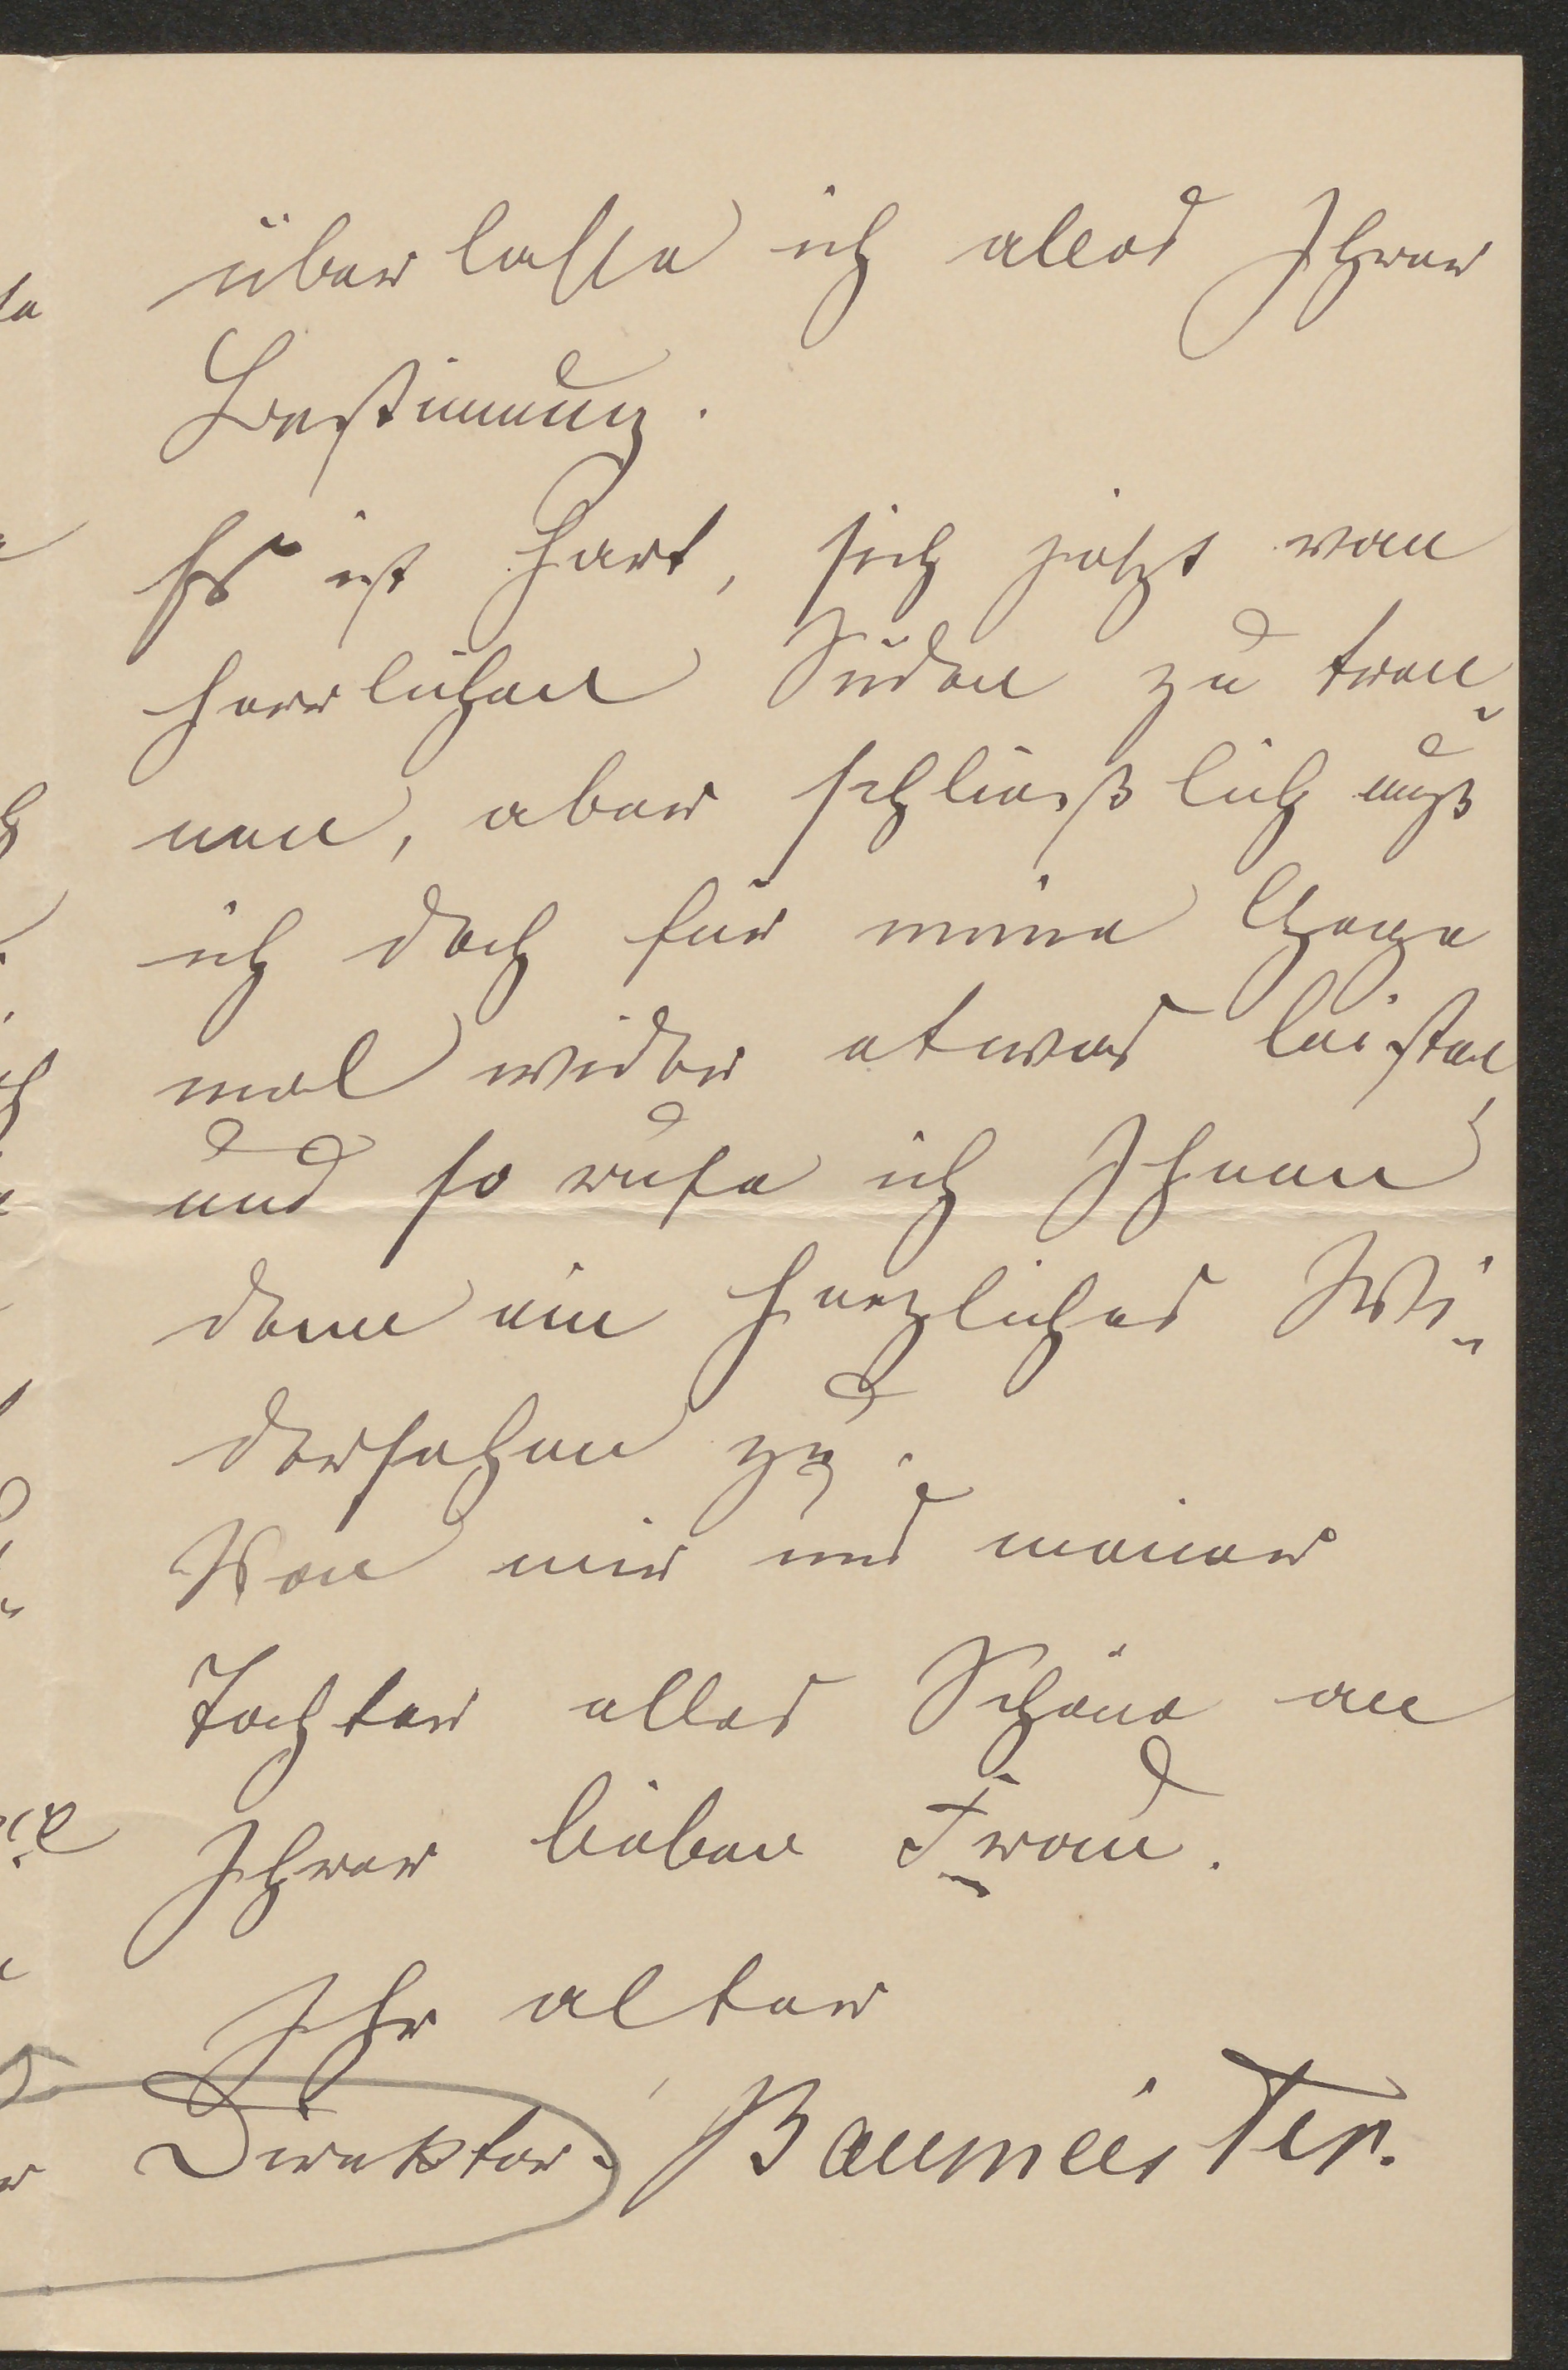 über lasse ich alles Ihrer
Bestimmung.
Es ist hart, sich jetzt von
herrlichen Süden zu tren-
nen, aber schließlich muß
ich doch für meine Gage
mal wieder etwas leisten,
und so rufe ich Ihnen
denn ein herzliches Wi-
dersehen zu.
Von mir und meiner
Tochter alles Schöne an
Ihrer lieben Frau.
Ihr alter
Direktor. Baumeister.